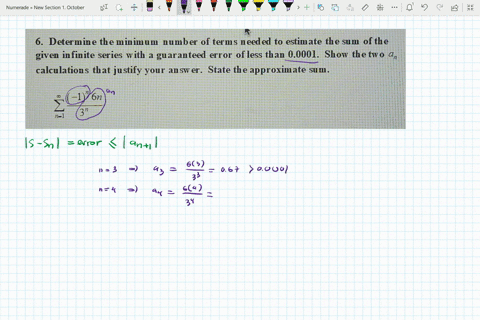 Numerade • New Section 1. October
6. Determine the minimum number of terms needed to estimate the sum of the
given infinite series with a guaranteed error of less than 0.0001. Show the two aₙ
calculations that justify your answer. State the approximate sum.
∞ ∑ n=1 (-1)ⁿ 6n / 3ⁿ aₙ
|S-Sₙ| = error ≤ |aₙ₊₁|
n=3 ⇒ a₃ = 6(3)/3³ = 0.67 > 0.0001
n=4 ⇒ a₄ = 6(4)/3⁴ =